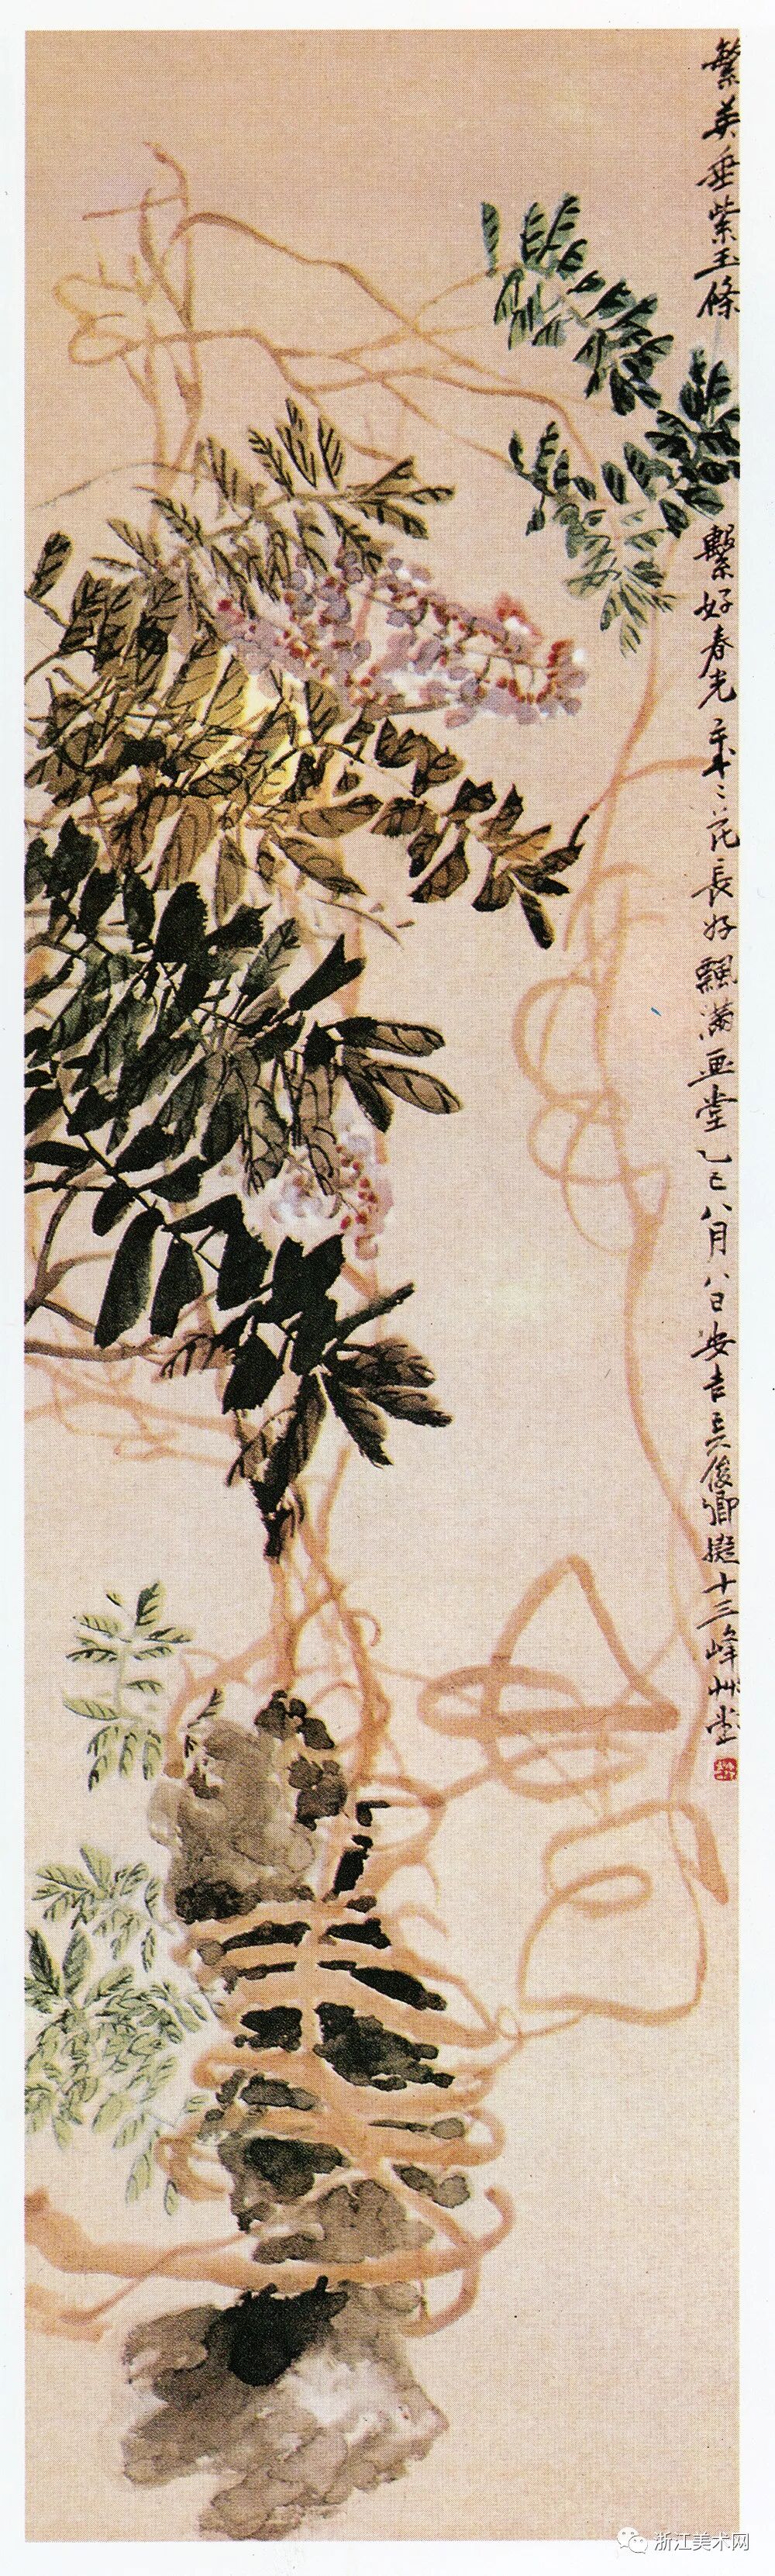 繁英垂紫玉條
繫好春光歲歲花長好飄滿畫堂乙巳八月八日安吉吳俊卿擬十三峰艸堂
浙江美术网